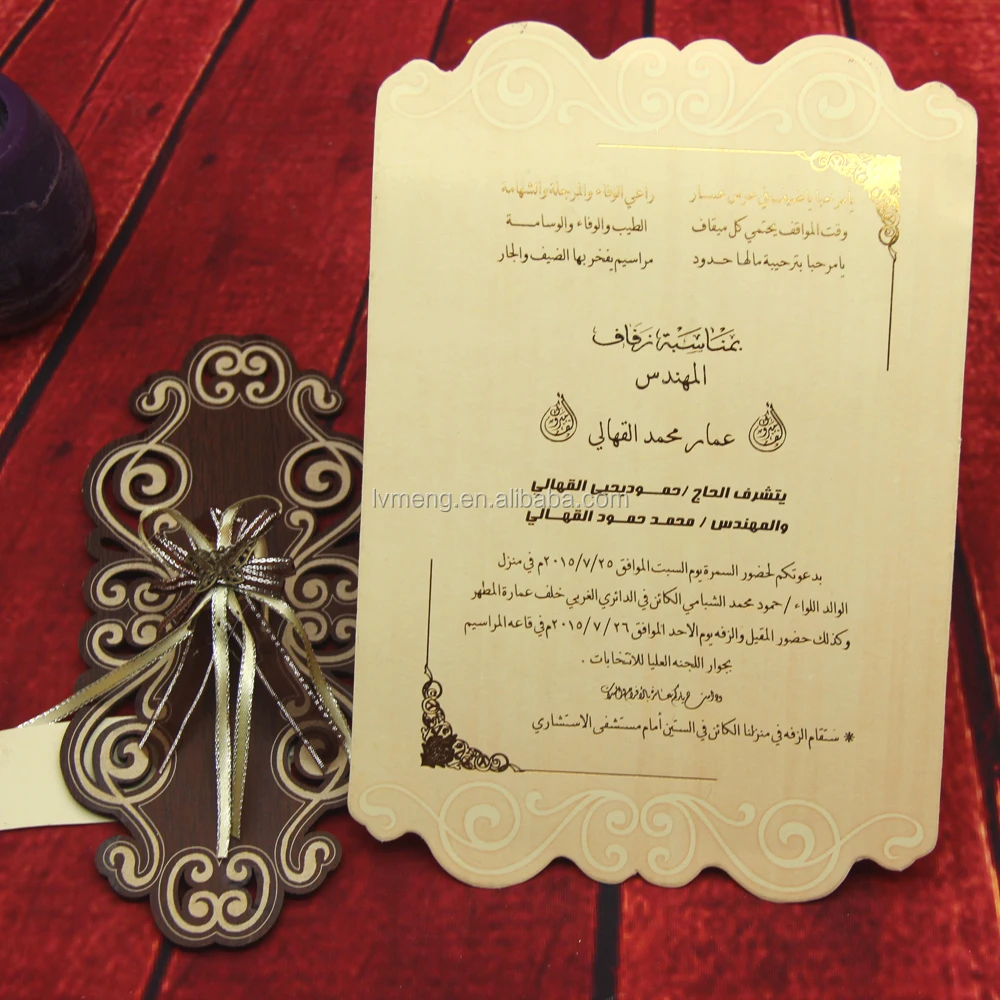 يامرحبا راعي الوفاء والمرجلة والشهامة
وقت المواقف يحتمي كل ميقاف الطيب والوفاء والوسامـــة
يا مرحبا بترحيبة مالها حدود مراسيم يفخر بها الضيف والجار
بمناسبة زفاف
المهندس
عمار محمد القهالي
يتشرف الحاج /حمـــوديحيى القهالي
lvmeng.en.alibaba.com
والمهندس / محمـد حمـــود القهـــالي
بدعوتكم لحضور السمرة يوم السبت الموافق ٢٠١٥/٧/٢٥م في منزل
الوالد اللواء / حمود محمد الشبامي الكائن في الدائري الغربي خلف عمارة المطهر
وكذلك حضور المقيل والزفه يوم الاحد الموافق ٢٠١٥/٧/٢٦م في قاعه المراسيم
بجوار اللجنه العليا للانتخابات .
* ستقام الزفه في منزلنا الكائن في الستين أمام مستشفى الاستشاري